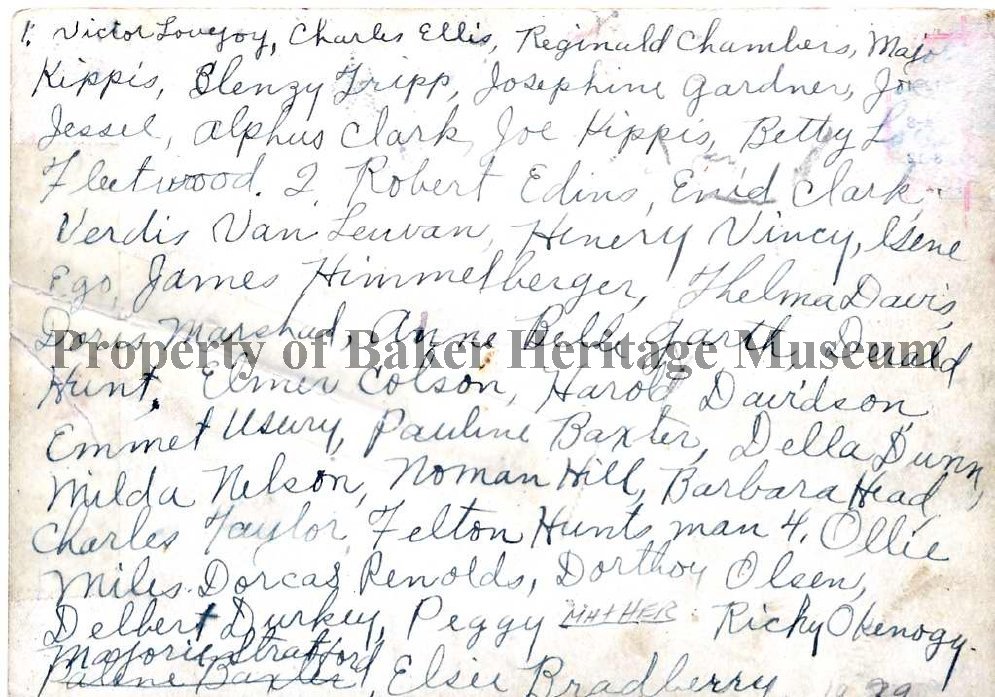 1. Victor Lovejoy, Charles Ellis, Reginald Chambers, Major
Kippis, Glenzy Fripp, Josephine Gardner, Joe
Jessel, Alphus Clark, Joe Kippis, Betty L
Fleetwood. 2, Robert Edins, Enid Clark,
Verdis Van Leuvan, Hinery Vincy, Gene
Ego, James Himmelberger, Thelma Davis,
Doris Marshad, Anne Garth, Derald
Property of Baker Heritage Museum
Hunt, Elmer Colson, Harold Davidson,
Emmet Usury, Pauline Baxter, Della Dunn,
Milda Nelson, Noman Hill, Barbara Head,
Charles Taylor, Felton Hunts man 4. Ollie
Miles Dorcas Renolds, Dorthoy Olsen,
Delbert Durkey, Peggy MATHER Ricky Okenogy.
Marjorie Stratford
Palene Baxter, Elsie Bradberry